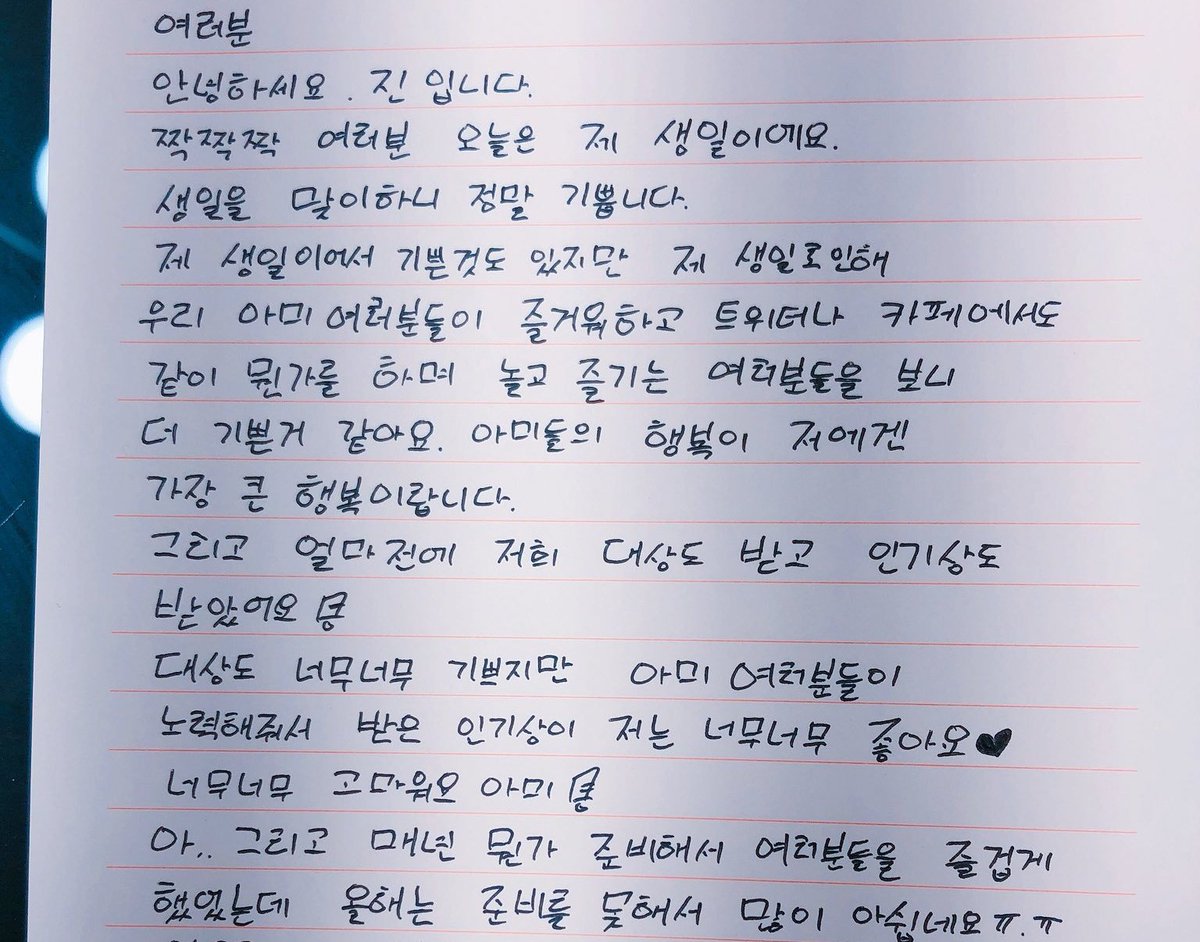 여러분
안녕하세요. 진 입니다.
짝짝짝 여러분 오늘은 제 생일이에요.
생일을 맞이하니 정말 기쁩니다.
제 생일이어서 기쁜것도 있지만 제 생일로인해
우리 아미 여러분들이 즐거워하고 트위터나 카페에서도
같이 뭔가를 하며 놀고 즐기는 여러분들을 보니
더 기쁜거 같아요. 아미들의 행복이 저에겐
가장 큰 행복이랍니다.
그리고 얼마전에 저희 대상도 받고 인기상도
받았어요
대상도 너무너무 기쁘지만 아미 여러분들이
노력해줘서 받은 인기상이 저는 너무너무 좋아요♥
너무너무 고마워요 아미
아.. 그리고 매년 뭔가 준비해서 여러분들을 즐겁게
했었는데 올해는 준비를 못해서 많이 아쉽네요ㅠ.ㅠ